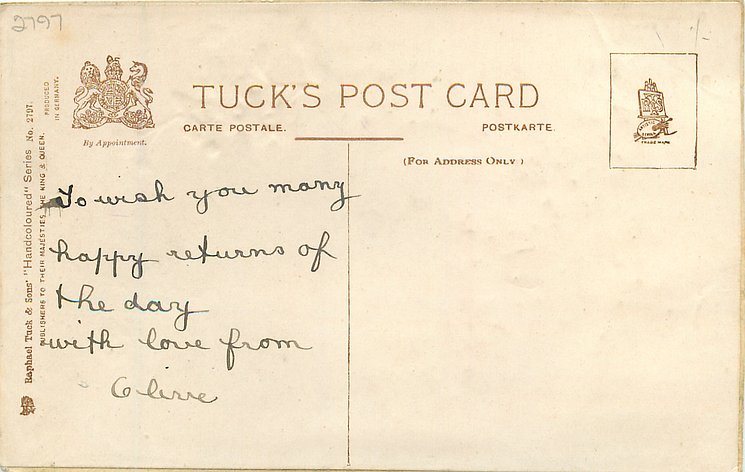 2797
1/-
PRODUCED
IN GERMANY.
By Appointment.
TUCK'S POST CARD
CARTE POSTALE.
POSTKARTE.
(FOR ADDRESS ONLY)
TRADE MARK
Raphael Tuck & Sons' "Handcoloured" Series No. 2797.
PUBLISHERS TO THEIR MAJESTIES THE KING & QUEEN.
To wish you many
happy returns of
the day
with love from
Olive